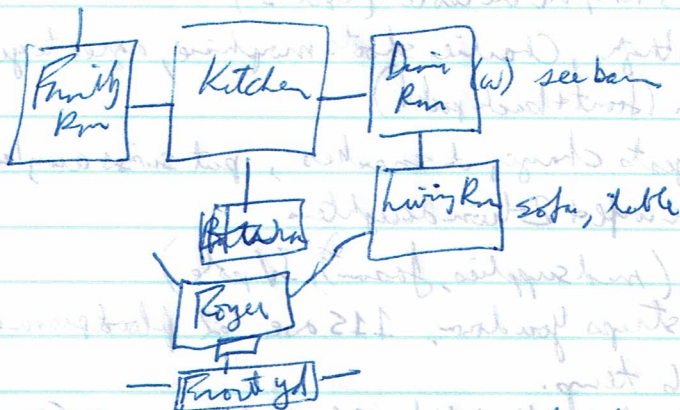 Family
Rm
Kitchen
Dinin
Rm
(w) see barn
Living Rm
sofa, table
Foyer
Front yd